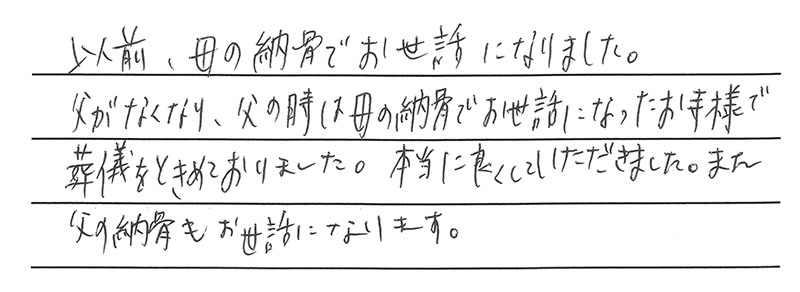 以前、母の納骨でお世話になりました。
父がなくなり、父の時は母の納骨でお世話になったお寺様で
葬儀をときめておりました。本当に良くしていただきました。また
父の納骨もお世話になります。